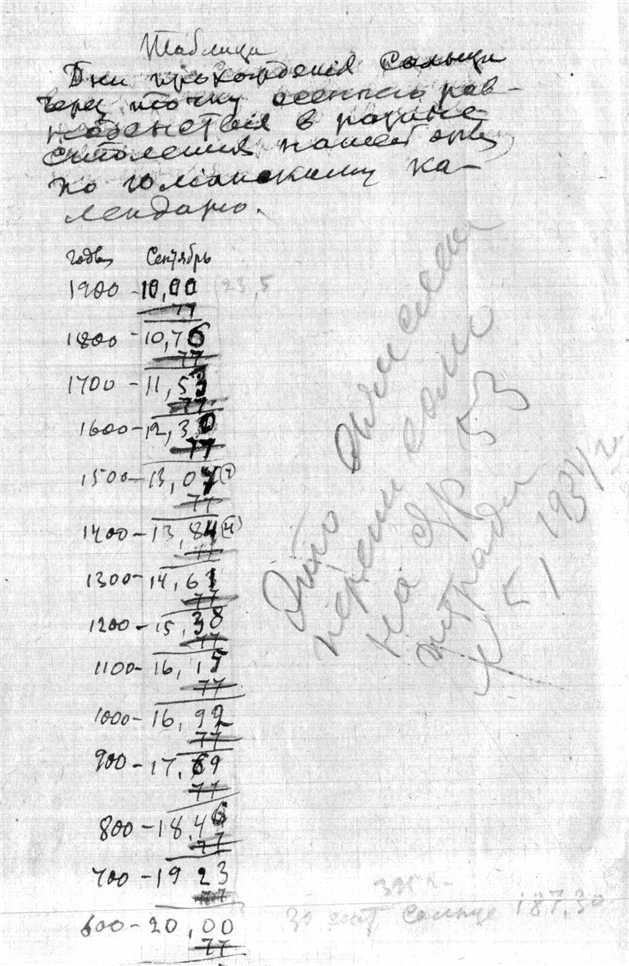 Таблица
Дни прохождения Солнца
через точку осеннего рав-
ноденствия в разные
столетия нашей эры
по юлианскому ка-
лендарю.
Годы Сентябрь
1900 - 10,00 23,5
77
1800 - 10,76
77
1700 - 11,53
77
1600 - 12,30
77
1500 - 13,07 (7)
77
1400 - 13,84 (4)
77
1300 - 14,61
77
1200 - 15,38
77
1100 - 16,15
77
1000 - 16,92
77
900 - 17,69
77
800 - 18,46
77
700 - 19 23
77
600 - 20,00
77
Это
на стр 53
тетради
№ 51
30 сент Солнце 187,30